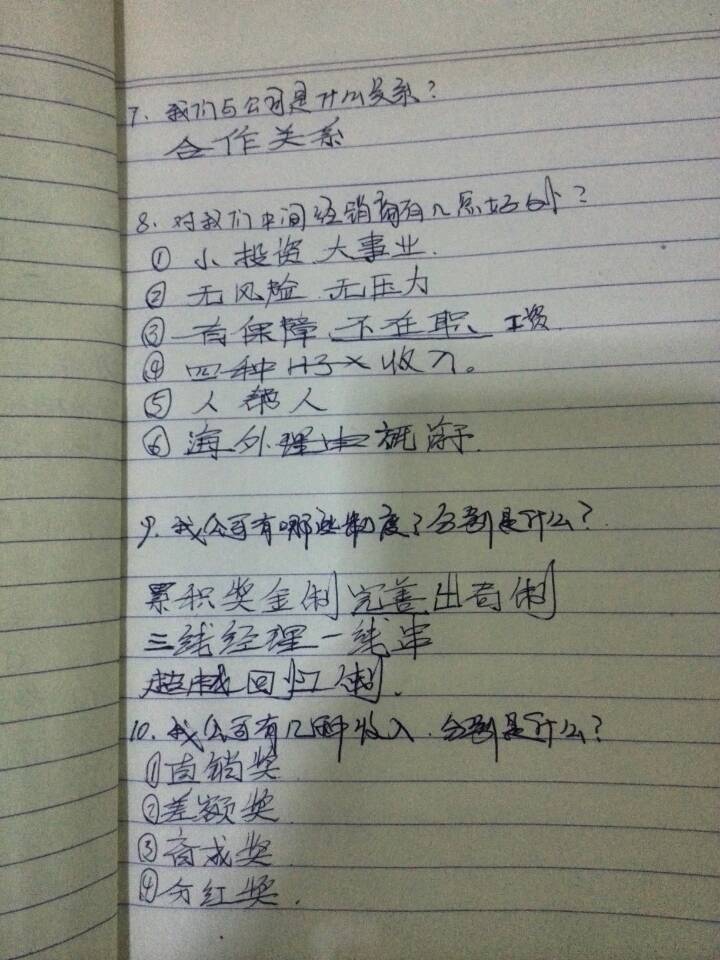 7. 我们与公司是什么关系?
合作关系
8. 对我们中间经销商有几点好处?
① 小投资 大事业.
② 无风险 无压力
③ 有保障 不在职、工资
④ 四种 收入。
⑤ 人帮人
⑥ 海外理
9. 我公司有哪些制度?分别是什么?
累积奖金制 完善出局制
三线经理一线串
超越回归制.
10. 我公司有几种收入.分别是什么?
① 直销奖
② 差额奖
③ 育成奖
④ 分红奖.